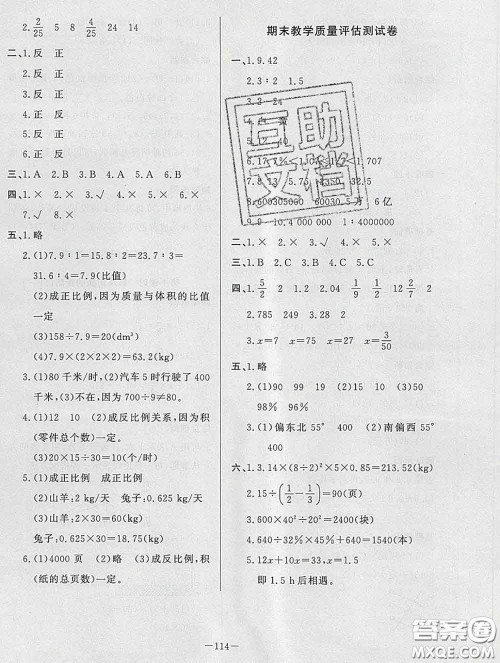 2. 2/25 5 8 4/25 24 14
二、1.反 正
2.反 正
3.反 正
4.正 反
5.正 反
6.正 反
三、1.A 2.B 3.A 4.B
四、1.√ 2.× 3.× 4.√ 5.× 6.×
7.√ 8.×
五、1.略
2.(1)7.9∶1=15.8∶2=23.7∶3=
31.6∶4=7.9(比值)
(2)成正比例,因为质量与体积的比值
一定
(3)158÷7.9=20(dm³)
(4)7.9×(2×2×2)=63.2(kg)
3.(1)80 千米/时,(2)汽车 5 时行驶了 400
千米,(3)不在,因为 700÷9≠80。
4.(1)12 10 (2)成反比例关系,因为积
(零件总个数)一定。
(3)20×15÷30=10(个)
5.(1)成正比例 成正比例
(2)山羊:2 kg/天 兔子:0.625 kg/天
(3)山羊:2×30=60(kg)
兔子:0.625×30=18.75(kg)
6.(1)4000 页 (2)略 (3)成反比例,积
(纸的总页数)一定。
期末教学质量评估测试卷
一、1.9.42
2.3∶2 1.5
3.2 24
互助文档
5.17
7.8 13 5.75 1350
8.600305000 60030.5 万 6 亿
9.9 10.4 000 000 1∶4000000
二、1.× 2.× 3.√ 4.× 5.×
三、1.B 2.C 3.C 4.A 5.C
四、1. 5/2 2 1.2 0.04 12 2/7 2
2.785 249 3
3.x=7 x=75 x=27 x=3/50
五、1.略
2.(1)50 48 (2)49 50 (3)150 153
98% 96%
3.(1)偏东北 55° 400 (2)南偏西 55°
400
六、1.3.14×(8÷2)²×5×850=213.52(kg)
2.15÷(1/2-1/3)=90(页)
3.600×40²÷20²=2400(块)
4.640÷32%×45%+640=1540(本)
5.12x+10x=33, x=1.5
即 1.5 h后相遇。
—114—
答案圈
MXQE.COM